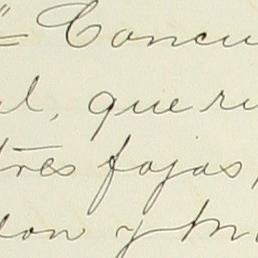 " = Concu
al, que ru
tres fojas,
don y M